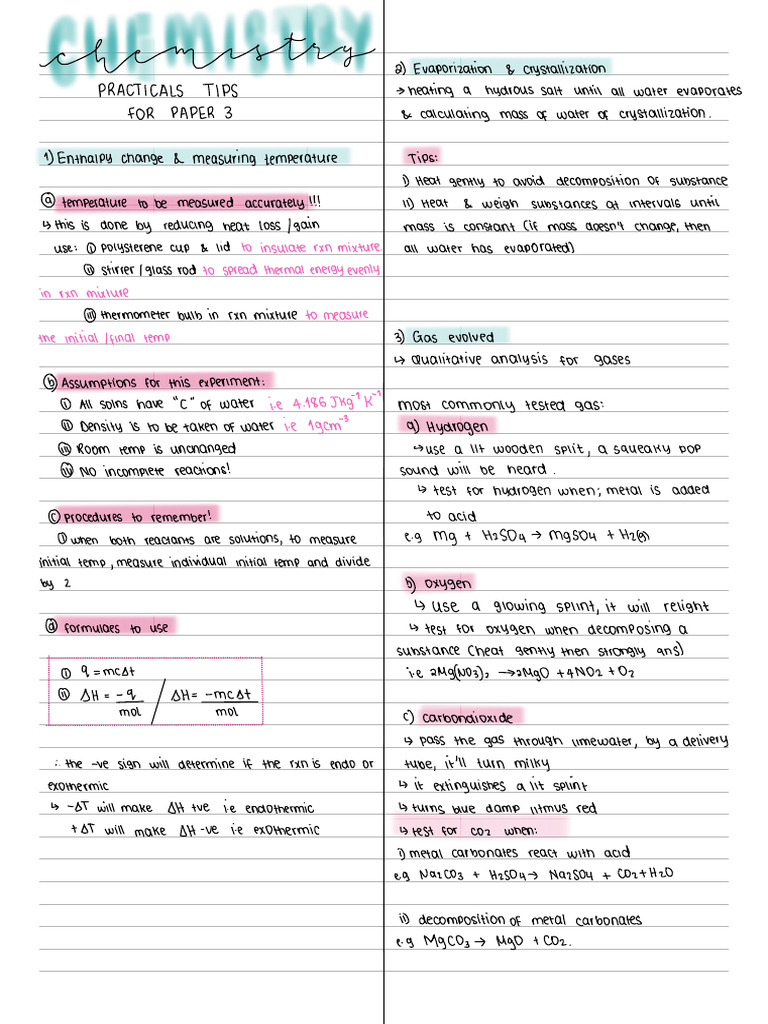 CHEMISTRY
chemistry
PRACTICALS TIPS
FOR PAPER 3
1) Enthalpy change & measuring temperature
ⓐ temperature to be measured accurately!!!
↳ this is done by reducing heat loss/gain
use: ① polysterene cup & lid to insulate rxn mixture.
ⓘⓘ stirrer/glass rod to spread thermal energy evenly
in rxn mixture
ⓘⓘⓘ thermometer bulb in rxn mixture to measure
the initial/final temp
ⓑ Assumptions for this experiment:
ⓘ All solns have "C" of water i.e 4.186 Jkg⁻¹K⁻¹
ⓘⓘ Density is to be taken of water i.e 1gcm⁻³
ⓘⓘⓘ Room temp is unchanged
ⓘⓥ No incomplete reactions!
ⓒ procedures to remember!
ⓘ when both reactants are solutions, to measure
initial temp, measure individual initial temp and divide
by 2
ⓓ formulaes to use
ⓘ q = mcΔt
ⓘⓘ ΔH = -q/mol / ΔH = -mcΔt/mol
∴ the -ve sign will determine if the rxn is endo or
exothermic
↳ -ΔT will make ΔH +ve i.e endothermic
+ΔT will make ΔH -ve i.e exothermic
2) Evaporization & crystallization
→ heating a hydrous salt until all water evaporates
& calculating mass of water of crystallization.
Tips:
i) Heat gently to avoid decomposition of substance
ii) Heat & weigh substances at intervals until
mass is constant (if mass doesn't change, then
all water has evaporated)
3) Gas evolved
↳ Qualitative analysis for gases
most commonly tested gas:
a) Hydrogen
↳ use a lit wooden split, a squeaky pop
sound will be heard.
↳ test for hydrogen when; metal is added
to acid
e.g Mg + H₂SO₄ → MgSO₄ + H₂(g)
b) oxygen
↳ Use a glowing splint, it will relight
↳ test for oxygen when decomposing a
substance (heat gently then strongly ans)
i.e 2Mg(NO₃)₂ → 2MgO + 4NO₂ + O₂
c) carbondioxide
↳ pass the gas through limewater, by a delivery
tube, it'll turn milky
↳ it extinguishes a lit splint
↳ turns blue damp litmus red
↳ test for CO₂ when:
i) metal carbonates react with acid
e.g Na₂CO₃ + H₂SO₄ → Na₂SO₄ + CO₂ + H₂O
ii) decomposition of metal carbonates
e.g MgCO₃ → MgO + CO₂.